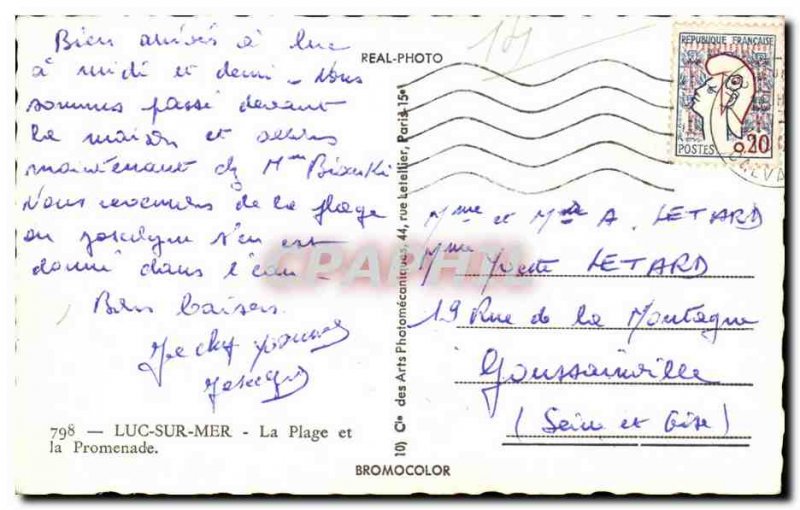 Bien arrivés à Luc
à midi et demi - Nous
sommes passé devant
la maison et allons
maintenant Mme
Nous revenons de la plage
ou Jocelyne s'en est
donné dans l'eau -
Bons baisers
798 — LUC-SUR-MER - La Plage et
la Promenade.
REAL-PHOTO
10) Cie des Arts Photomécaniques, 44, rue Letellier, Paris-15e
BROMOCOLOR
CPAPHIL
RÉPUBLIQUE FRANÇAISE
POSTES 0.20
CALVA
Mme et A. LETARD
Mme Yvette LETARD
19 Rue de la Montagne
Goussainville
(Seine et Oise)